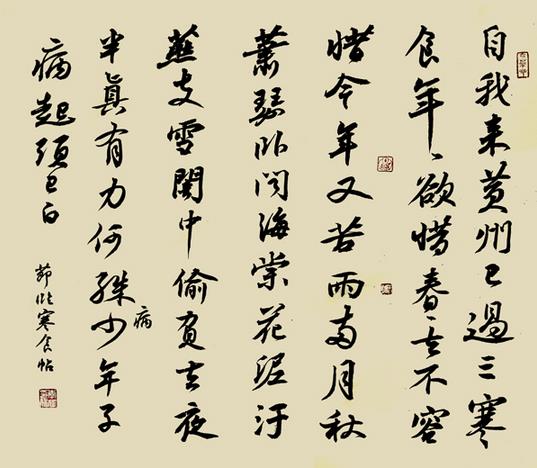 自我来黄州已過三寒
食年、欲惜春、去不容
惜今年又苦雨两月秋
蕭瑟卧闻海棠花泥汙
燕支雪闇中偷負去夜
半真有力何殊少年子
病
病起頭已白
節临寒食帖